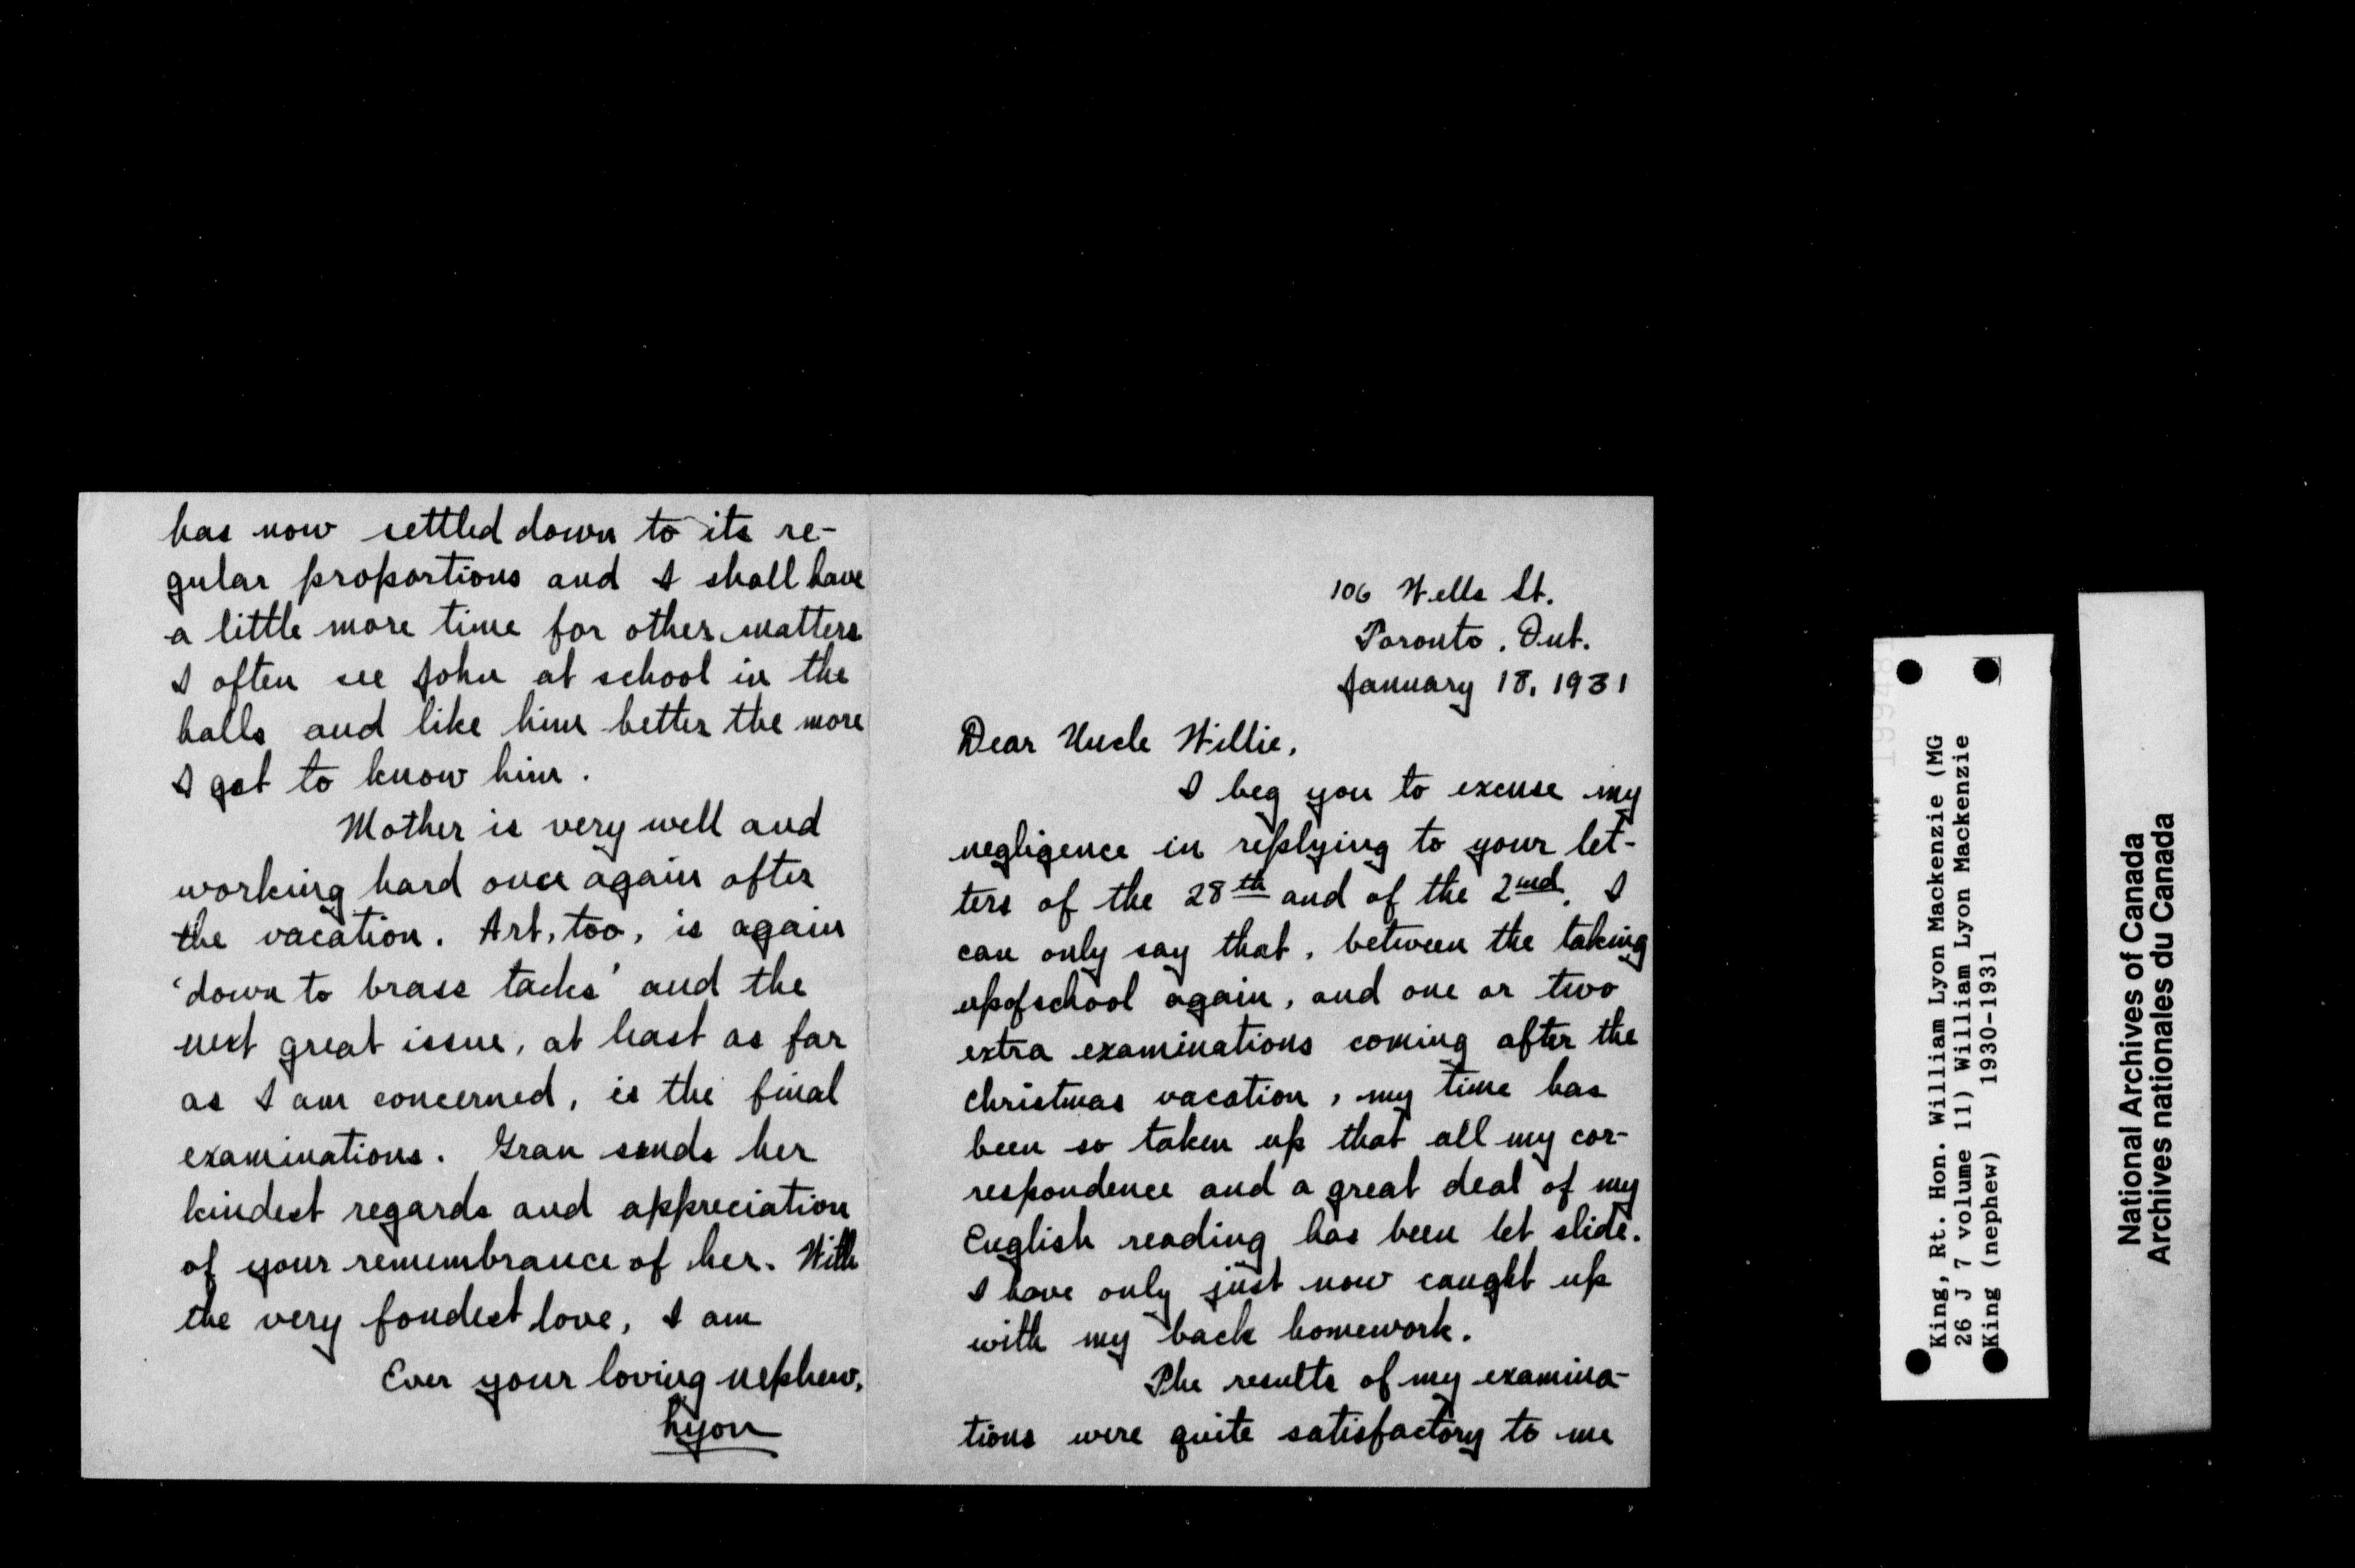 has now settled down to its re-
gular proportions and I shall have
a little more time for other matters
I often see John at school in the
halls and like him better the more
I get to know him.
Mother is very well and
working hard once again after
the vacation. Art, too, is again
'down to brass tacks' and the
next great issue, at least as far
as I am concerned, is the final
examinations. Gran sends her
kindest regards and appreciation
of your remembrance of her. With
the very fondest love, I am
Ever your loving nephew,
Lyon
106 Wells St.
Toronto, Ont.
January 18, 1931
Dear Uncle Willie,
I beg you to excuse my
negligence in replying to your let-
ters of the 28th and of the 2nd. I
can only say that, between the taking
up of school again, and one or two
extra examinations coming after the
Christmas vacation, my time has
been so taken up that all my cor-
respondence and a great deal of my
English reading has been let slide.
I have only just now caught up
with my back homework.
The results of my examina-
tions were quite satisfactory to me
King, Rt. Hon. William Lyon Mackenzie (MG
26 J 7 volume 11) William Lyon Mackenzie
King (nephew) 1930-1931
National Archives of Canada
Archives nationales du Canada